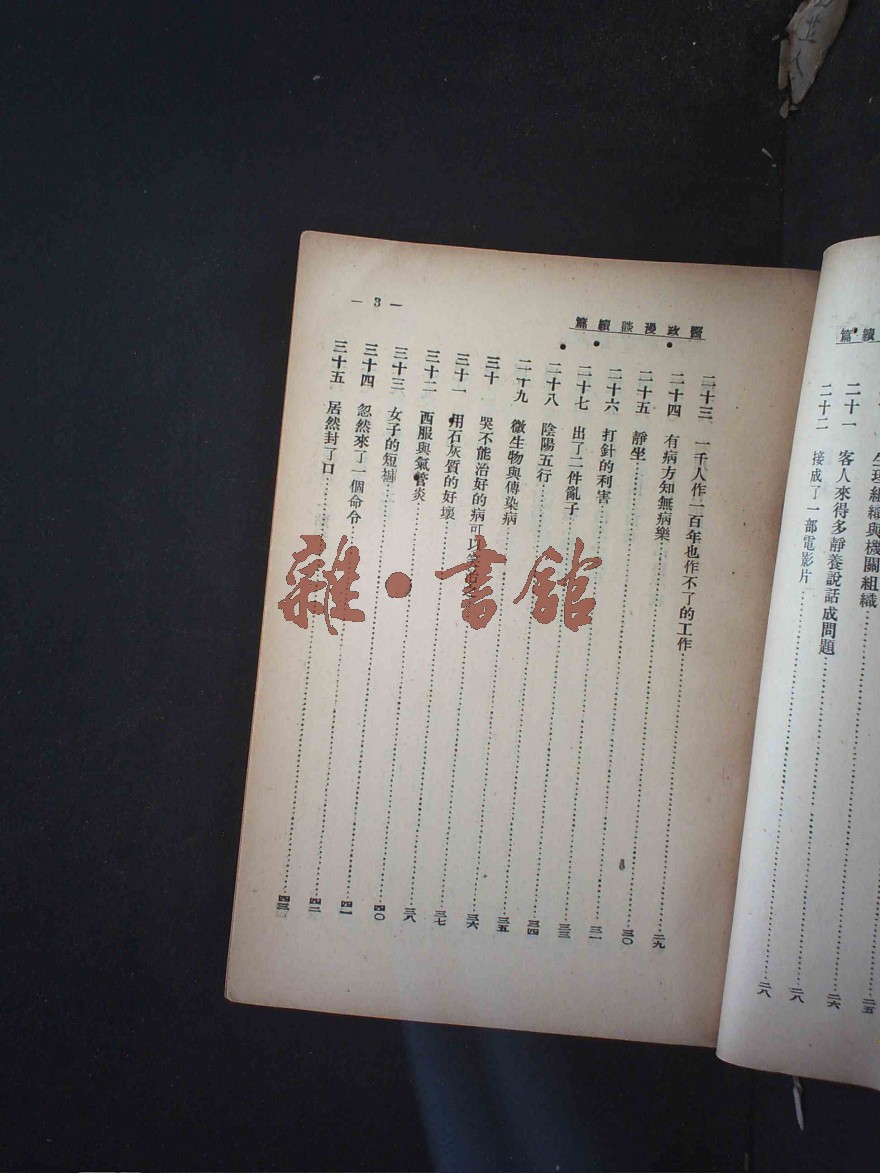 續篇
生理組織與機關組織
二五
二六
二十一 客人來得多靜養說話成問題……二八
二十二 接成了一部電影片……二八
醫政漫談續篇
二十三 一千人作一百年也作不了的工作……二九
二十四 有病方知無病樂……三〇
二十五 靜坐……三一
二十六 打針的利害……三三
二十七 出了二件亂子……三四
二十八 陰陽五行……三五
二十九 微生物與傳染病……三六
三十 哭不能治好的病可以……三七
三十一 用石灰質的好壞……三八
三十二 西服與氣管炎……四〇
三十三 女子的短褲……四一
三十四 忽然來了一個命令……四二
三十五 居然封了口……四三
— 3 —
雜·書館